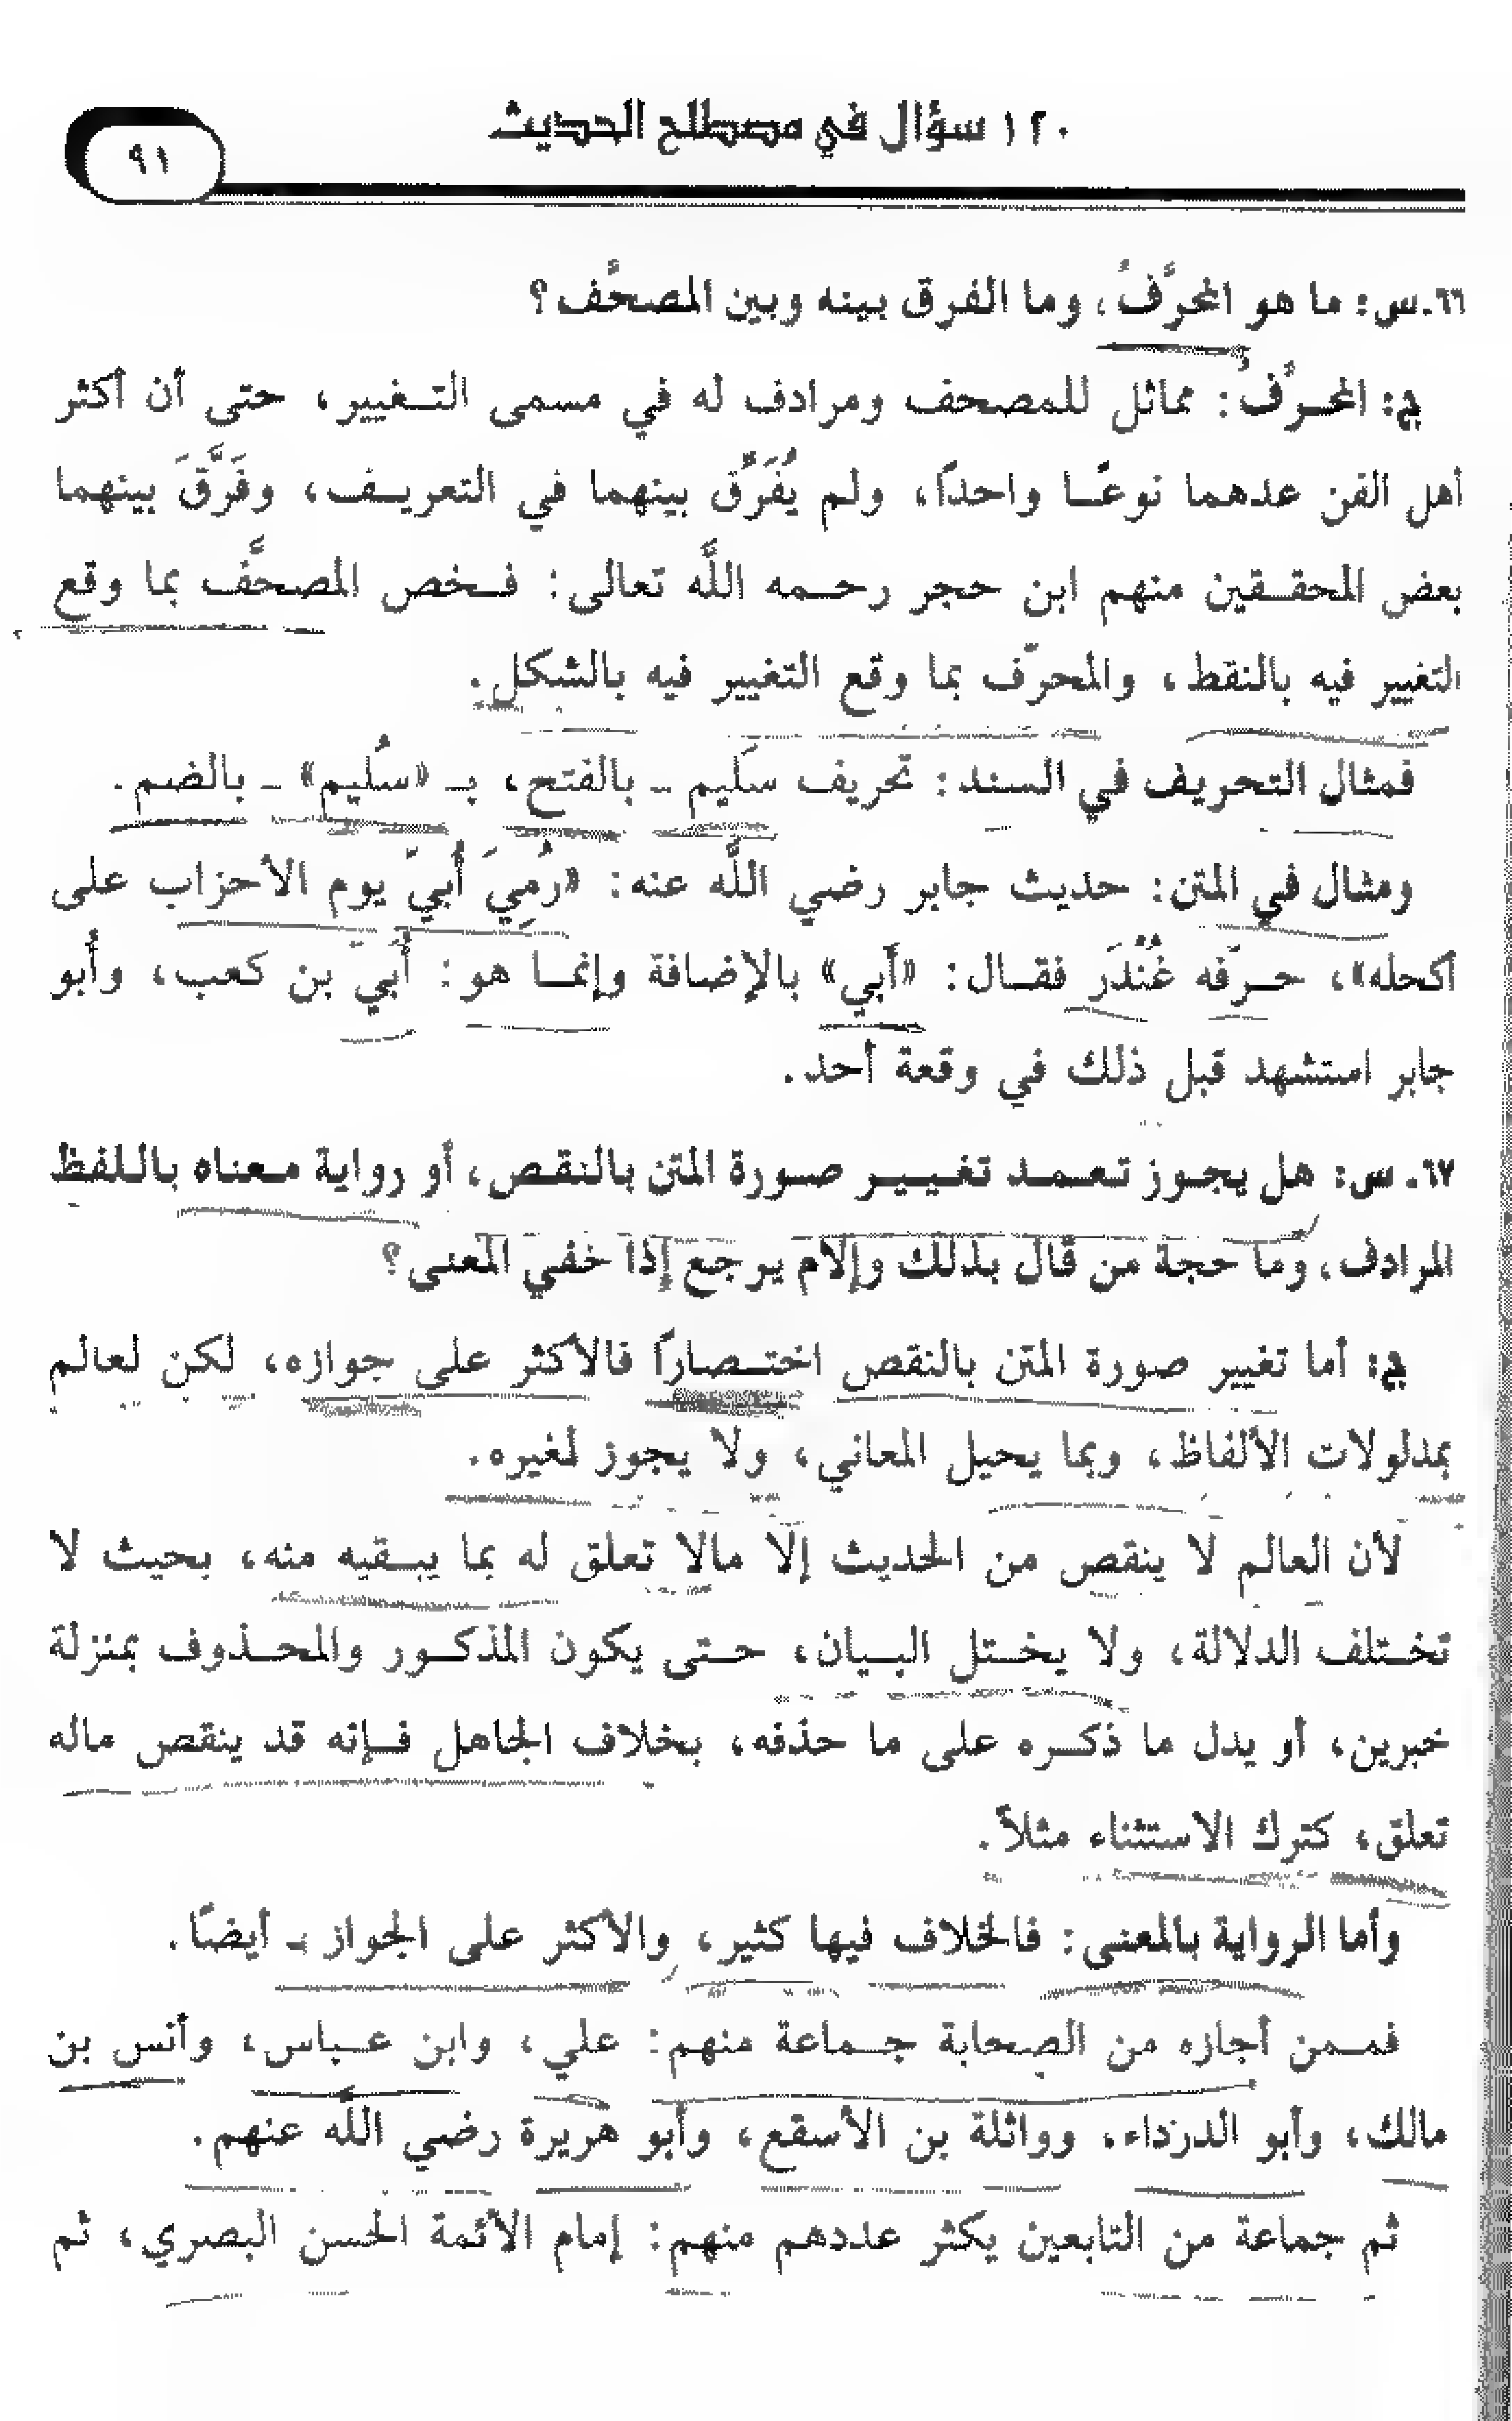 ١٢٠ سؤال في مصطلح الحديث
٩١
٦٦ـ س: ما هو المحرَّفُ، وما الفرق بينه وبين المصحَّف؟
ج: المحرَّفُ: مماثل للمصحف ومرادف له في مسمى التغيير، حتى أن أكثر
أهل الفن عدهما نوعًا واحدًا، ولم يُفَرِّق بينهما في التعريف، وفَرَّقَ بينهما
بعض المحققين منهم ابن حجر رحمه اللَّه تعالى: فخص المصحَّف بما وقع
التغيير فيه بالنقط، والمحرّف بما وقع التغيير فيه بالشكل.
فمثال التحريف في السند: تحريف سَليم ـ بالفتح، بـ «سُليم» ـ بالضم.
ومثال في المتن: حديث جابر رضي اللَّه عنه: «رُمِيَ أُبيّ يوم الأحزاب على
أكحله»، حرّفه غُنْدَر فقال: «أبي» بالإضافة وإنما هو: أُبَيّ بن كعب، وأبو
جابر استشهد قبل ذلك في وقعة أحد.
٦٧ـ س: هل يجوز تعمد تغيير صورة المتن بالنقص، أو رواية معناه باللفظ
المرادف، وما حجة من قال بذلك وإلام يرجع إذا خفي المعنى؟
ج: أما تغيير صورة المتن بالنقص اختصارًا فالأكثر على جوازه، لكن لعالم
بمدلولات الألفاظ، وبما يحيل المعاني، ولا يجوز لغيره.
لأن العالم لا ينقص من الحديث إلّا مالا تعلق له بما يبقيه منه، بحيث لا
تختلف الدلالة، ولا يختل البيان، حتى يكون المذكور والمحذوف بمنزلة
خبرين، أو يدل ما ذكره على ما حذفه، بخلاف الجاهل فإنه قد ينقص ماله
تعلق، كترك الاستثناء مثلاً.
وأما الرواية بالمعنى: فالخلاف فيها كثير، والأكثر على الجواز ـ أيضًا.
فممن أجازه من الصحابة جماعة منهم: علي، وابن عباس، وأنس بن
مالك، وأبو الدرداء، وواثلة بن الأسقع، وأبو هريرة رضي اللَّه عنهم.
ثم جماعة من التابعين يكثر عددهم منهم: إمام الأئمة الحسن البصري، ثم